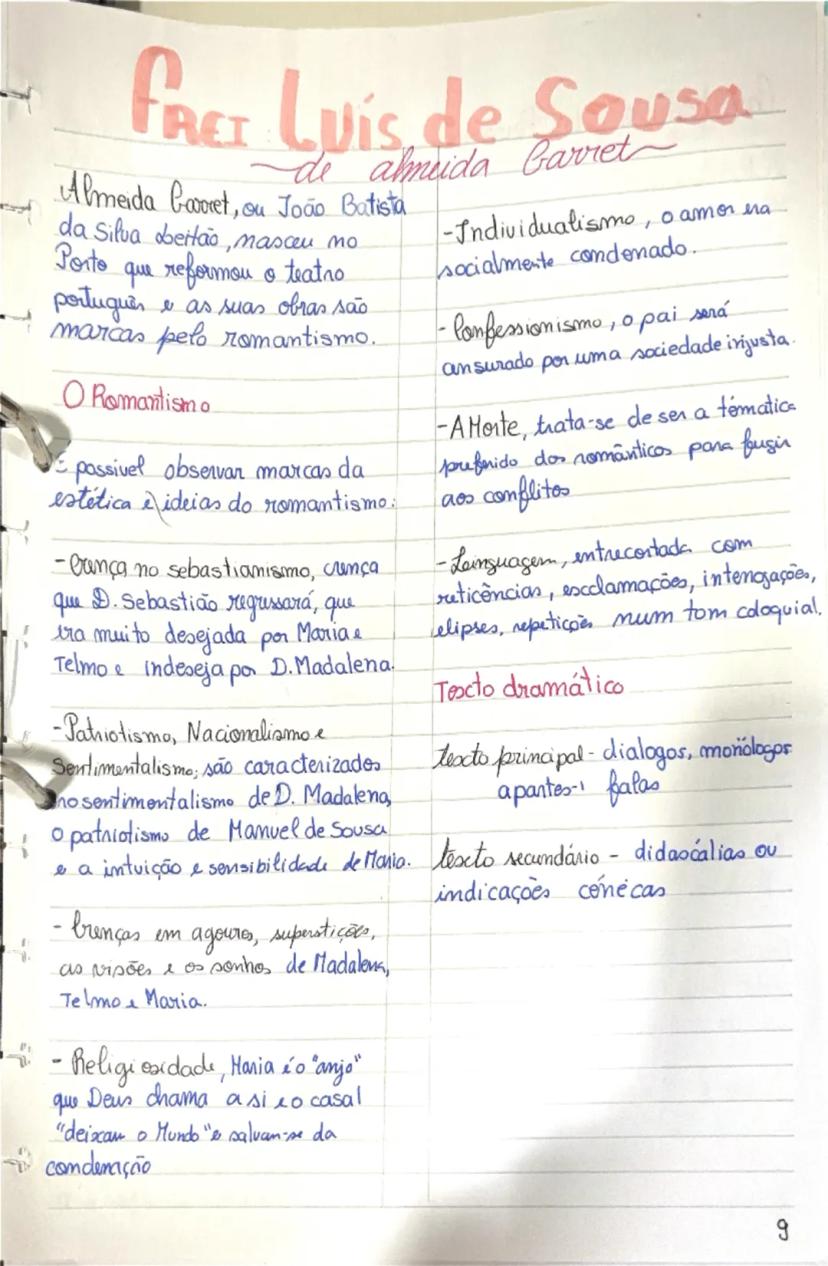 Frei Luís de Sousa
de almeida Garret
Almeida Garret, ou João Batista
da Silva Leitão, nasceu no
Porto que reformou o teatro
português e as suas obras são
marcas pelo romantismo.
O Romantismo
É possivel observar marcas da
estética e ideias do romantismo:
-Crença no sebastianismo, crença
que D. Sebastião regressará, que
era muito desejada por Maria e
Telmo e indeseja por D. Madalena.
-Patriotismo, Nacionalismo e
Sentimentalismo; são caracterizados
no sentimentalismo de D. Madalena,
o patriotismo de Manuel de Sousa
e a intuição e sensibilidade de Maria.
- Crenças em agouros, superstições,
as visões e os sonhos de Madalena,
Telmo e Maria.
- Religiosidade, Maria é o "anjo"
que Deus chama a si e o casal
"deixam o Mundo" e salvam-se da
condenação
-Individualismo, o amor era
socialmente condenado.
- Confessionismo, o pai será
ansurado por uma sociedade injusta.
-A Morte, trata-se de ser a témática
preferido dos românticos para fugir
aos conflitos
-Languagem, entrecortada com
reticências, exclamações, interrogações,
elipses, repetições num tom coloquial.
Texto dramático
texto principal - dialogos, monólogos
apartes, falas
texto secundário - didascálias ou
indicações cénecas
9